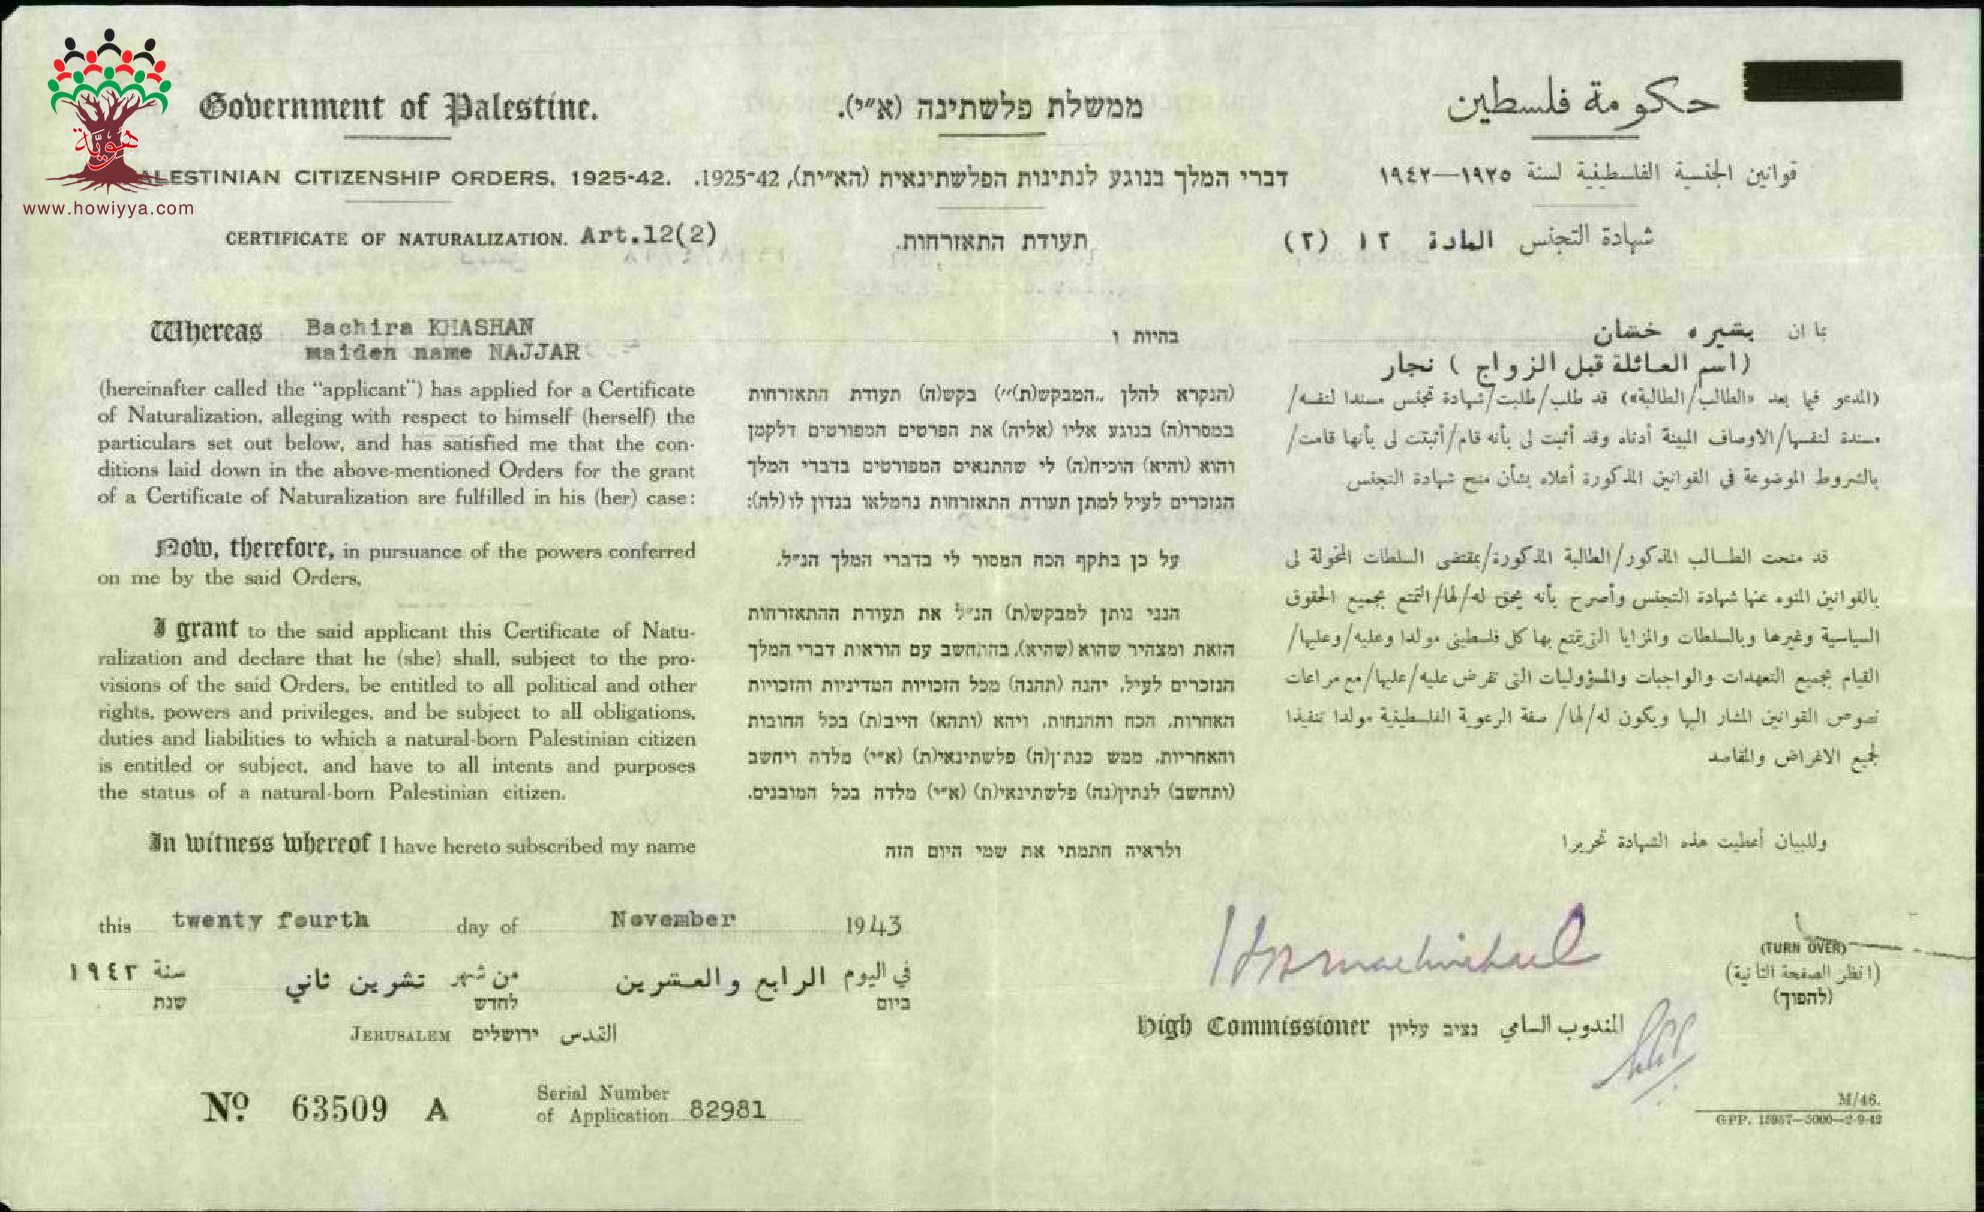 هويّة
www.howiyya.com
Government of Palestine.
ממשלת פלשתינה (א״י).
حكومة فلسطين
PALESTINIAN CITIZENSHIP ORDERS, 1925-42.
דברי המלך בנוגע לנתינות הפלשתינאית (הא״ית), 1925-42.
قوانين الجنسية الفلسطينية لسنة ١٩٢٥—١٩٤٢
CERTIFICATE OF NATURALIZATION. Art.12(2)
תעודת התאזרחות.
شهادة التجنس المادة ١٢ (٢)
Whereas Bachira KHASHAN
maiden name NAJJAR
(hereinafter called the “applicant”) has applied for a Certificate
of Naturalization, alleging with respect to himself (herself) the
particulars set out below, and has satisfied me that the con-
ditions laid down in the above-mentioned Orders for the grant
of a Certificate of Naturalization are fulfilled in his (her) case:
Now, therefore, in pursuance of the powers conferred
on me by the said Orders,
I grant to the said applicant this Certificate of Natu-
ralization and declare that he (she) shall, subject to the pro-
visions of the said Orders, be entitled to all political and other
rights, powers and privileges, and be subject to all obligations,
duties and liabilities to which a natural-born Palestinian citizen
is entitled or subject, and have to all intents and purposes
the status of a natural-born Palestinian citizen.
In witness whereof I have hereto subscribed my name
בהיות ו
(הנקרא להלן „המבקש(ת)״) בקש(ה) תעודת התאזרחות
במסרו(ה) בנוגע אליו (אליה) את הפרטים המפורטים דלקמן
והוא (והיא) הוכיח(ה) לי שהתנאים המפורטים בדברי המלך
הנזכרים לעיל למתן תעודת התאזרחות נתמלאו בנדון לו (לה):
על כן בתקף הכח המסור לי בדברי המלך הנ״ל.
הנני נותן למבקש(ת) הנ״ל את תעודת ההתאזרחות
הזאת ומצהיר שהוא (שהיא), בהתחשב עם הוראות דברי המלך
הנזכרים לעיל, יהנה (תהנה) מכל הזכויות המדיניות והזכויות
האחרות, הכח וההנחות, ויהא (ותהא) חייב(ת) בכל החובות
והאחריות, ממש כנתין(ה) פלשתינאי(ת) (א״י) מלדה ויחשב
(ותחשב) לנתין(נה) פלשתינאי(ת) (א״י) מלדה בכל המובנים.
ולראיה חתמתי את שמי היום הזה
بما ان بشيره خشان
(اسم العائلة قبل الزواج) نجار
(المدعو فيما بعد «الطالب/الطالبة») قد طلب/طلبت/شهادة تجنس مسندا لنفسه/
مسندة لنفسها/الاوصاف المبينة أدناه وقد أثبت لي بأنه قام/أثبتت لي بأنها قامت/
بالشروط الموضوعة في القوانين المذكورة أعلاه بشأن منح شهادة التجنس
قد منحت الطالب المذكور/الطالبة المذكورة/بمقتضى السلطات المخولة لي
بالقوانين المنوه عنها شهادة التجنس وأصرح بأنه يحق له/لها/التمتع بجميع الحقوق
السياسية وغيرها وبالسلطات والمزايا التي يتمتع بها كل فلسطيني مولدا وعليه/وعليها/
القيام بجميع التعهدات والواجبات والمسؤوليات التي تفرض عليه/عليها/مع مراعات
نصوص القوانين المشار اليها ويكون له/لها/ صفة الرعوية الفلسطينية مولدا تنفيذا
لجميع الاغراض والمقاصد
وللبيان أعطيت هذه الشهادة تحريرا
this twenty fourth day of November 1943
في اليوم الرابع والعشرين من شهر تشرين ثاني سنة ١٩٤٣
ביום לחדש שנת
JERUSALEM ירושלים القدس
High Commissioner נציב עליון المندوب السامي
(TURN OVER)
(انظر الصفحة الثانية)
(להפוך)
No. 63509 A
Serial Number
of Application 82981
M/46.
GPP. 15957—5000—2-9-42